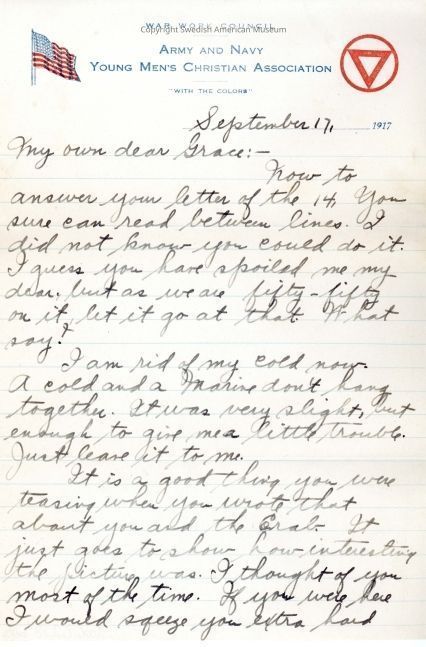 WAR WORK COUNCIL
Copyright Swedish American Museum
ARMY AND NAVY
YOUNG MEN'S CHRISTIAN ASSOCIATION
"WITH THE COLORS"
September 17, 1917
My own dear Grace:-
Now to
answer your letter of the 14. You
sure can read between lines. I
did not know you could do it.
I guess you have spoiled me my
dear, but as we are fifty-fifty
on it, let it go at that. What
say?
I am rid of my cold now.
A cold and a Marine don't hang
together. It was very slight, but
enough to give me a little trouble.
Just leave it to me.
It is a good thing you were
teasing when you wrote that
about you and the Arab. It
just goes to show how interesting
the picture was. I thought of you
most of the time. If you were here
I would squeeze you extra hard